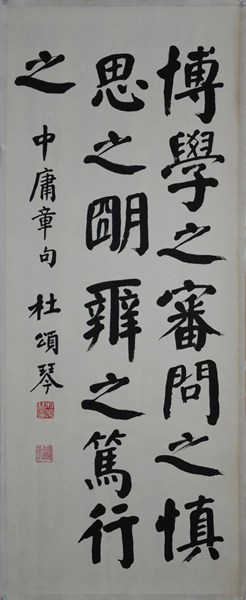 博學之審問之慎
思之朙辨之篤行
之
中庸章句 杜頌琴